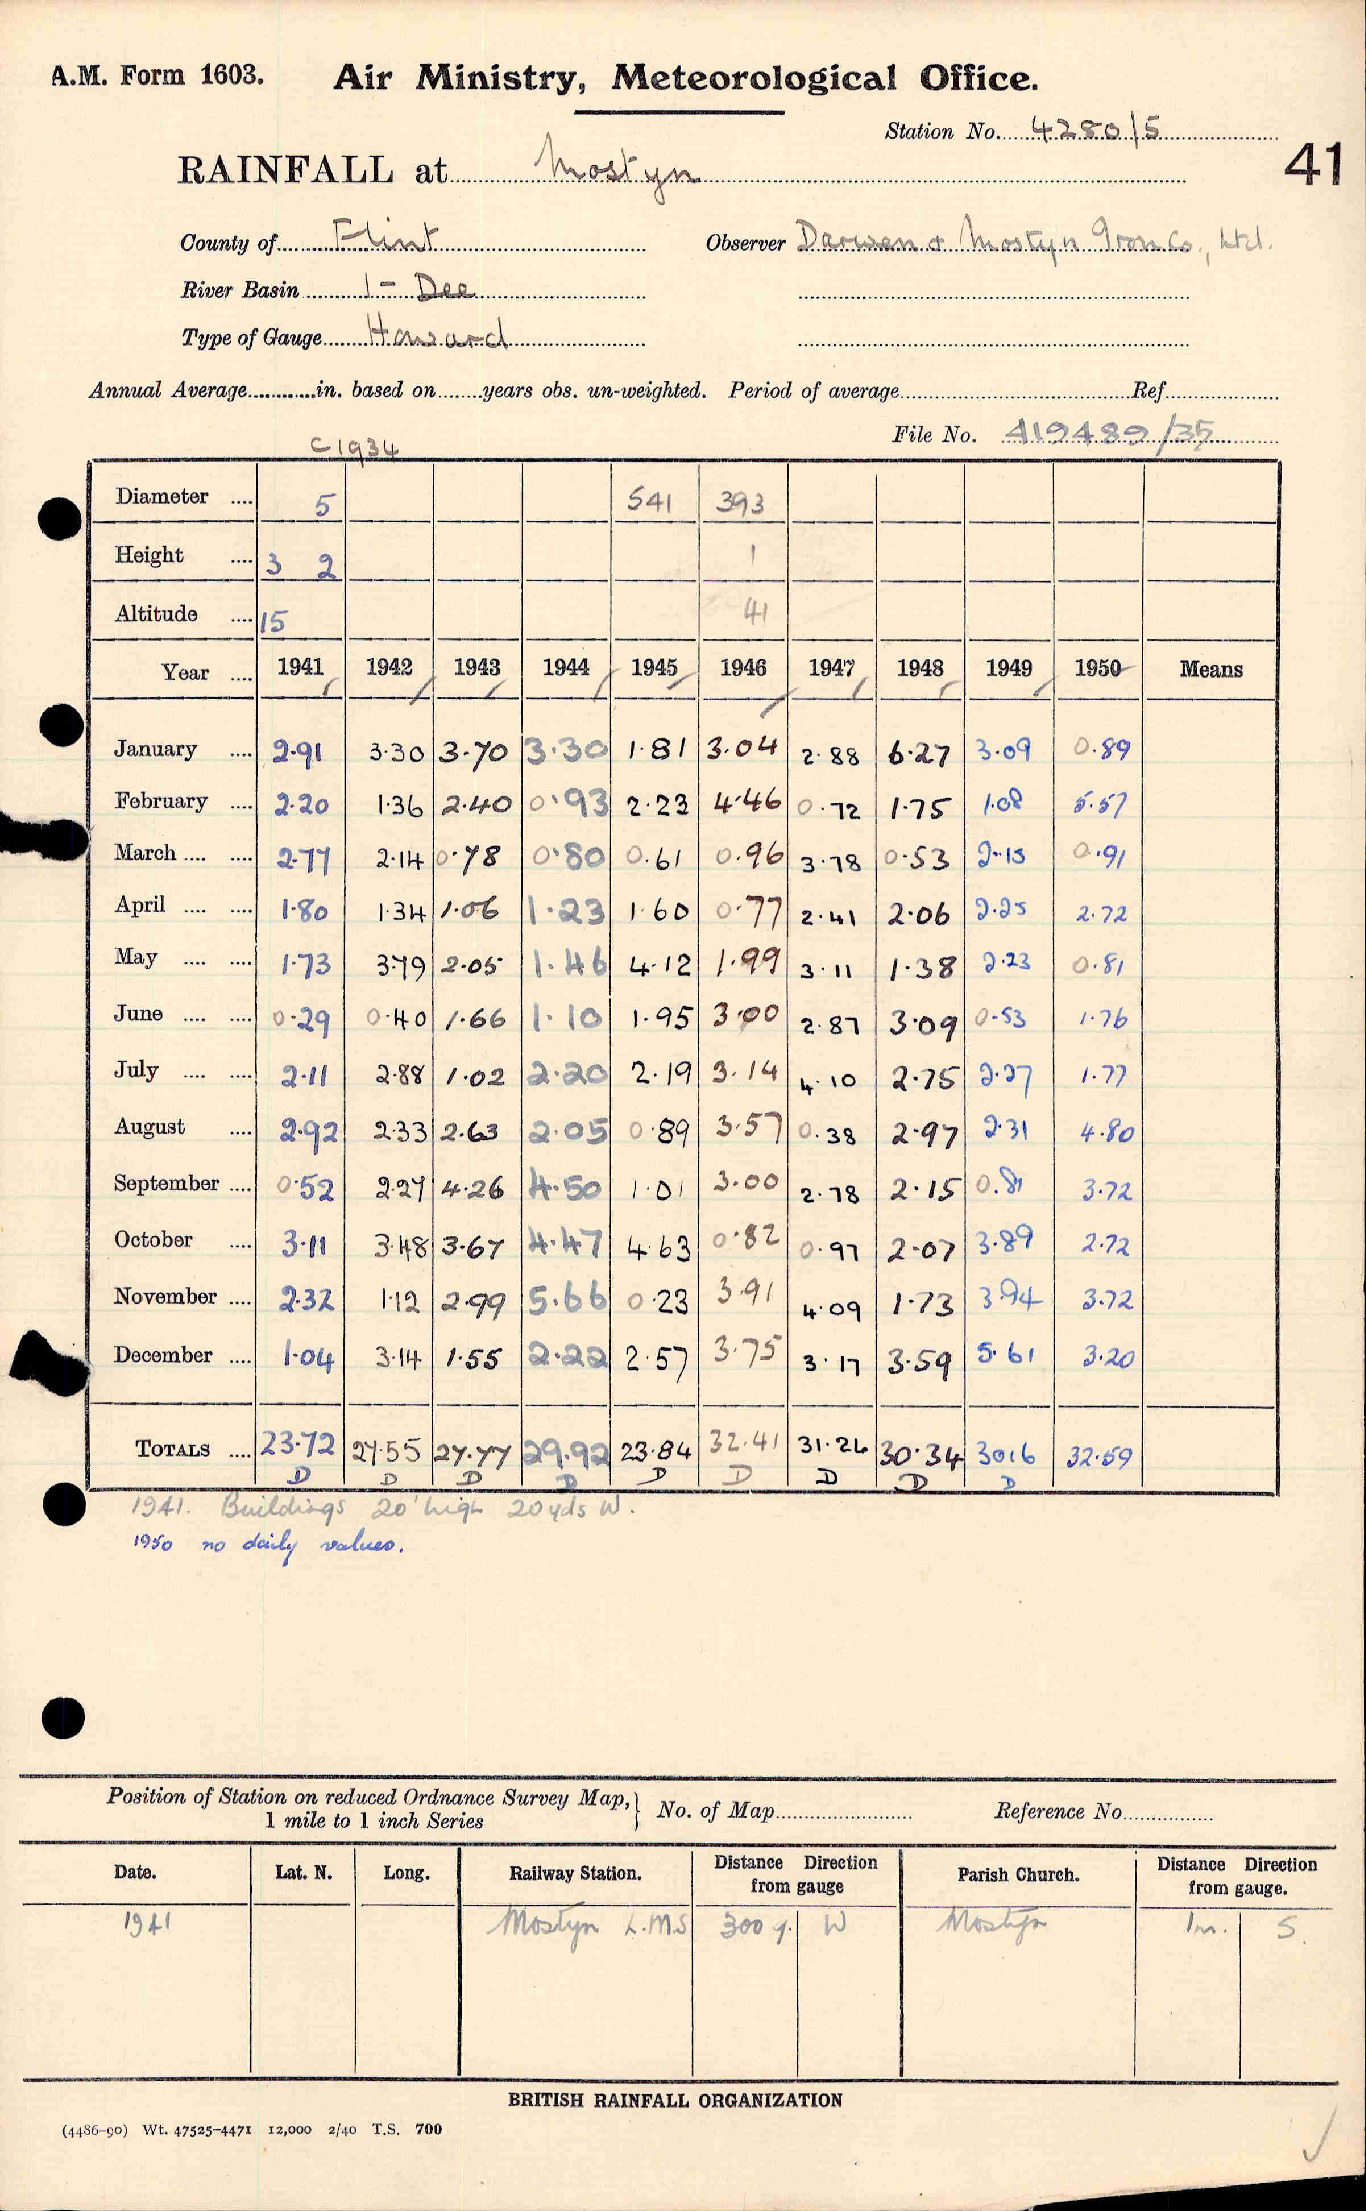 A.M. Form 1603. Air Ministry, Meteorological Office.
Station No. 4280/5
41
RAINFALL at Mostyn
County of Flint Observer Darwen & Mostyn Iron Co., Ltd.
River Basin 1 - Dee
Type of Gauge Howard
Annual Average in. based on years obs. un-weighted. Period of average Ref
File No. 419489/35
C 1934
Diameter 5 541 393
Height 3 2 1
Altitude 15 41
Year 1941 1942 1943 1944 1945 1946 1947 1948 1949 1950 Means
January 2.91 3.30 3.70 3.30 1.81 3.04 2.88 6.27 3.09 0.89
February 2.20 1.36 2.40 0.93 2.23 4.46 0.72 1.75 1.08 5.57
March 2.77 2.14 0.78 0.80 0.61 0.96 3.78 0.53 2.15 0.91
April 1.80 1.34 1.06 1.23 1.60 0.77 2.41 2.06 2.25 2.72
May 1.73 3.79 2.05 1.46 4.12 1.99 3.11 1.38 2.23 0.81
June 0.29 0.40 1.66 1.10 1.95 3.00 2.87 3.09 0.53 1.76
July 2.11 2.88 1.02 2.20 2.19 3.14 4.10 2.75 2.27 1.77
August 2.92 2.33 2.63 2.05 0.89 3.57 0.38 2.97 2.31 4.80
September 0.52 2.27 4.26 4.50 1.01 3.00 2.78 2.15 0.81 3.72
October 3.11 3.48 3.67 4.47 4.63 0.82 0.97 2.07 3.89 2.72
November 2.32 1.12 2.99 5.66 0.23 3.91 4.09 1.73 3.94 3.72
December 1.04 3.14 1.55 2.22 2.57 3.75 3.17 3.59 5.61 3.20
TOTALS 23.72 27.55 27.77 29.92 23.84 32.41 31.26 30.34 30.16 32.59
D D D D D D D D D
1941. Buildings 20' high 20 yds W.
1950 no daily values.
Position of Station on reduced Ordnance Survey Map, 1 mile to 1 inch Series } No. of Map Reference No
Date. Lat. N. Long. Railway Station. Distance Direction from gauge Parish Church. Distance Direction from gauge.
1941 Mostyn L.M.S 300 y. W Mostyn 1m. S.
BRITISH RAINFALL ORGANIZATION
(4486-90) Wt. 47525-4471 12,000 2/40 T.S. 700